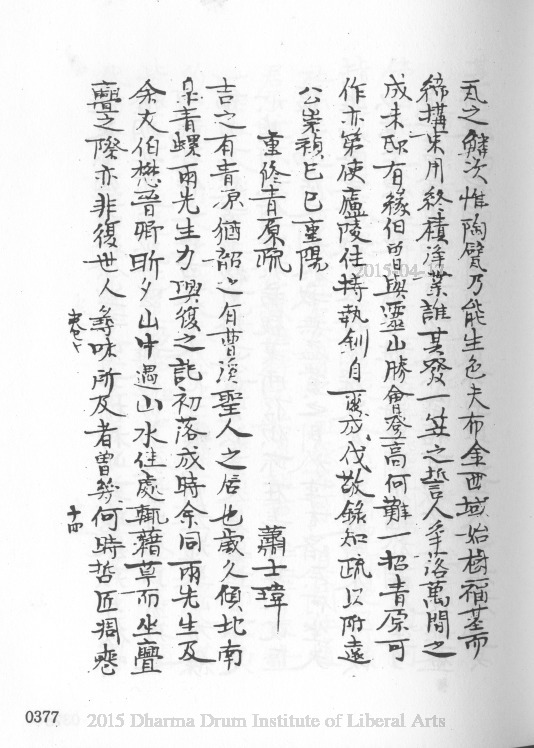 瓦之鱗次惟陶甓乃能生色夫布金西域始樹福基而
締搆東用終積淨業誰其發一年之誓人爭落萬間之
成未卽有緣但皆與靈山勝會登高何難一招青原可
作亦第使廬陵住持執劍自爾成伐敬錄知疏以附遠
公崇禎己巳重陽
重修青原疏
蕭士瑋
吉之有青原猶韶之有曹溪聖人之居也歲久傾圮南
皐青螺兩先生力興復之記初落成時余同兩先生及
余友伯懋晉卿昕夕山中遇山水佳處輒藉草而坐亹
亹之際亦非復世人尋味所及者曾幾何時哲匠凋喪
卷十
十四
0377
2015 Dharma Drum Institute of Liberal Arts